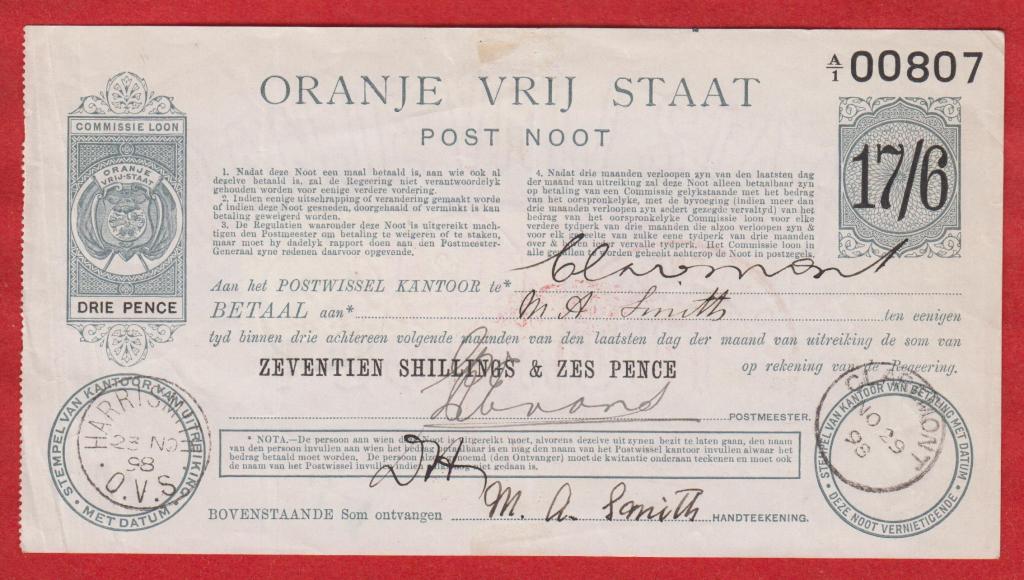 A/1 00807
ORANJE VRIJ STAAT
POST NOOT
COMMISSIE LOON
ORANJE
VRIJ-STAAT
DRIE PENCE
17/6
1. Nadat deze Noot een maal betaald is, aan wie ook al
dezelve betaald is, zal de Regeering niet verantwoordelyk
gehouden worden voor eenige verdere vordering.
2. Indien eenige uitschrapping of verandering gemaakt worde
of indien deze Noot gesneden, doorgehaald of verminkt is kan
betaling geweigerd worden.
3. De Regulatien waaronder deze Noot is uitgereikt mach-
tigen den Postmeester om betaling te weigeren of te staken,
maar moet hy dadelyk rapport doen aan den Postmeester-
Generaal zyne redenen daarvoor opgevende.
4. Nadat drie maanden verloopen zyn van den laatsten dag
der maand van uitreiking zal deze Noot alleen betaalbaar zyn
op betaling van een Commissie gelykstaande met het bedrag
van het oorspronkelyke, met de byvoeging (indien meer dan
drie maanden verloopen zyn sedert gezegd vervaltyd) van het
bedrag van het oorspronkelyke Commissie loon voor elke
verdere tydperk van drie maanden die alzoo verloopen zyn &
voor elk gedeelte van zulke eene tydperk van drie maanden
over & boven ieder vervalle tydperk. Het Commissie loon in
alle gevallen te worden gehecht achterop de Noot in postzegels.
Aan het POSTWISSEL KANTOOR te* Claremont
BETAAL aan* M. A. Smith ten eenigen
tyd binnen drie achtereen volgende maanden van den laatsten dag der maand van uitreiking de som van
ZEVENTIEN SHILLINGS & ZES PENCE op rekening van de Regeering.
POSTMEESTER.
* NOTA.—De persoon aan wien deze Noot is uitgereikt moet, alvorens dezelve uit zynen bezit te laten gaan, den naam
van den persoon invullen aan wien het bedrag betaald moet worden. De persoon
de naam van het Postwissel
moet de kwitantie onderaan teekenen en moet ook
gedaan is.
BOVENSTAANDE Som ontvangen M. A. Smith HANDTEEKENING.
STEMPEL VAN KANTOOR VAN UITREIKING
MET DATUM
HARRISMITH
23 NO
98
O.V.S
STEMPEL VAN KANTOOR VAN BETALING MET DATUM
DEZE NOOT VERNIETIGENDE
CLAREMONT
NO 29
98